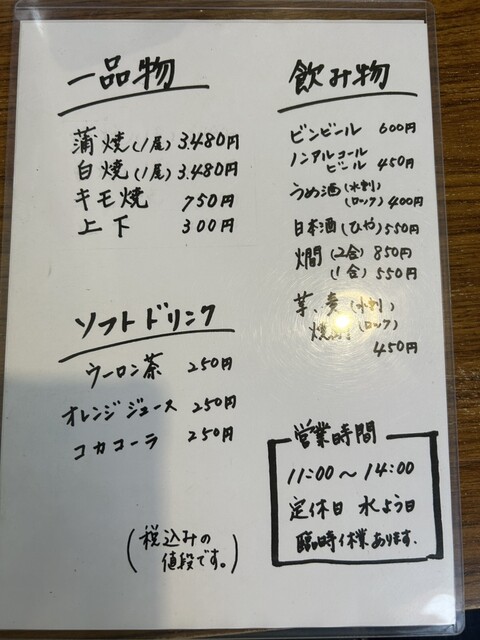 一品物
蒲焼(1尾) 3.480円
白焼(1尾) 3.480円
キモ焼 750円
上下 300円
ソフトドリンク
ウーロン茶 250円
オレンジジュース 250円
コカコーラ 250円
(税込みの
値段です。)
飲み物
ビンビール 600円
ノンアルコール
ビール 450円
うめ酒(水割)
(ロック) 400円
日本酒(ひや) 550円
燗(2合) 850円
(1合) 550円
芋、麦(水割)
焼酎(ロック)
450円
営業時間
11:00～14:00
定休日 水よう日
臨時休業あります.